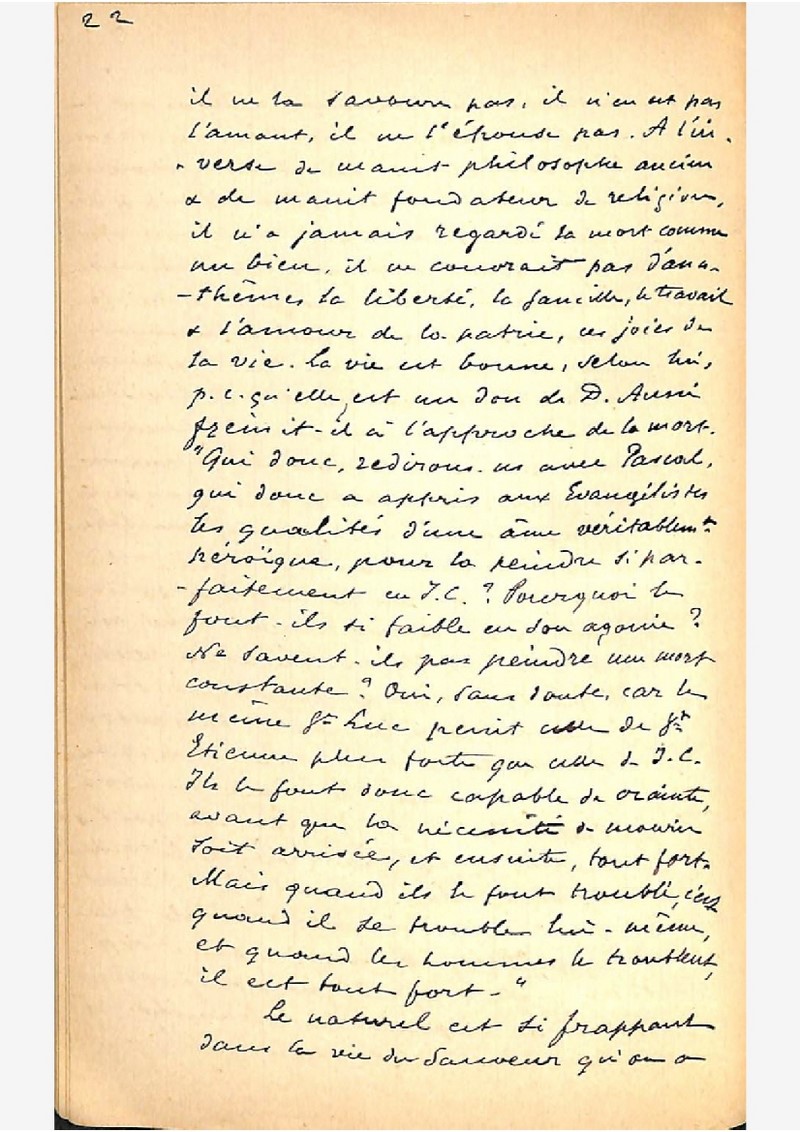 22
il ne la savoure pas, il n'en est pas
l'amant, il ne l'épouse pas. A l'in-
-verse de maint philosophe ancien
& de maint fondateur de religion,
il n'a jamais regardé la mort comme
un bien, il ne couvrait pas d'ana-
-thèmes la liberté, la famille, le travail
& l'amour de la patrie, ces joies de
la vie. La vie est bonne, selon lui,
p.c.qu'elle est un don de D. Aussi
frémit-il à l'approche de la mort.
"Qui donc, redirons-ns avec Pascal,
qui donc a appris aux Evangélistes
les qualités d'une âme véritablemt
héroïque, pour la peindre si par-
-faitement en J.C. ? Pourquoi le
font-ils si faible en son agonie ?
Ne savent-ils pas peindre une mort
constante ? Oui, sans doute, car le
même St Luc peint celle de St
Etienne plus forte que celle de J.C.
Ils le font donc capable de crainte,
avant que la nécessité de mourir
soit arrivée, et ensuite, tout fort.
Mais quand ils le font troublé, c'est
quand il se trouble lui-même,
et quand les hommes le troublent,
il est tout fort."
Le naturel est si frappant
dans la vie du Sauveur qu'on a